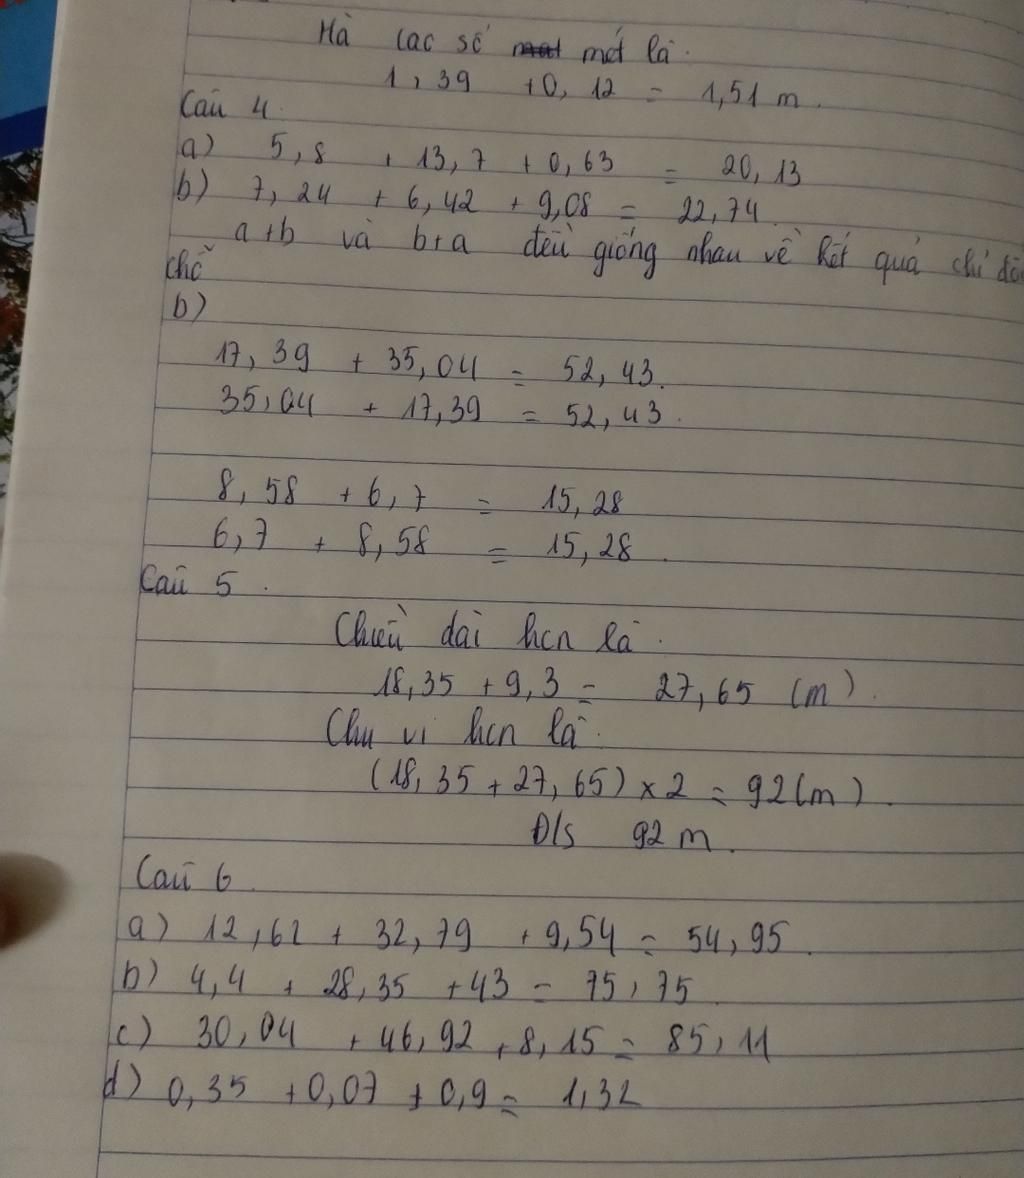 Hà cac số mét là.
1,39 + 0,12 = 1,51 m.
Câu 4.
a) 5,8 + 13,7 + 0,63 = 20,13
b) 7,24 + 6,42 + 9,08 = 22,74.
a+b và b+a đều giống nhau về kết quả chỉ
chỗ
b)
17,39 + 35,04 = 52,43.
35,04 + 17,39 = 52,43.
8,58 + 6,7 = 15,28
6,7 + 8,58 = 15,28.
Câu 5.
Chiều dài hcn là.
18,35 + 9,3 = 27,65 (m).
Chu vi hcn là.
(18,35 + 27,65) x 2 = 92 (m).
Đ/s 92 m.
Câu 6.
a) 12,62 + 32,79 + 9,54 = 54,95.
b) 4,4 + 28,35 + 43 = 75,75
c) 30,04 + 46,92 + 8,15 = 85,11
d) 0,35 + 0,07 + 0,9 = 1,32